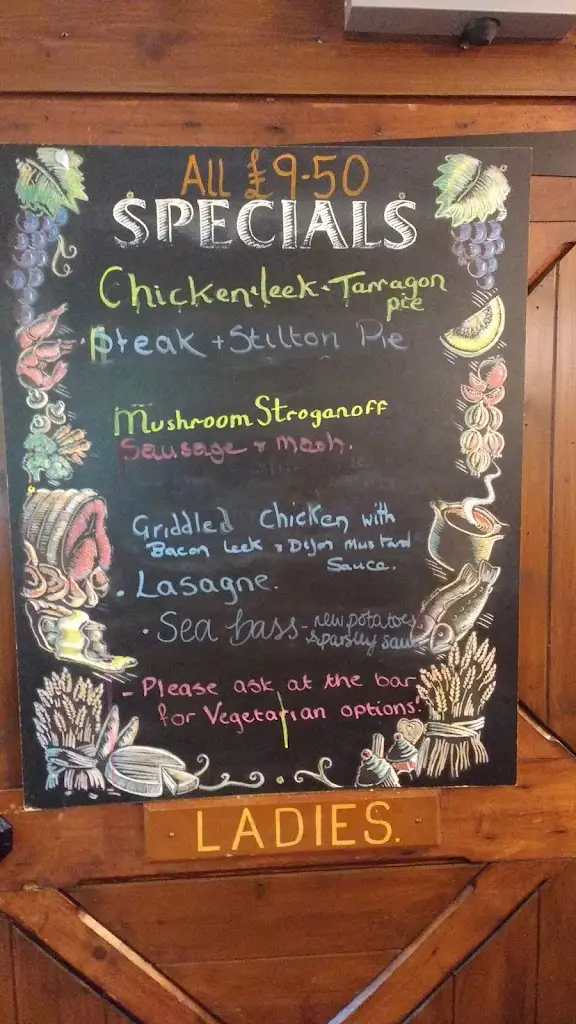 ALL £9-50
SPECIALS
Chicken·leek·Tarragon
pie
Steak + Stilton Pie
Mushroom Stroganoff
Sausage & mash.
Griddled Chicken with
Bacon Leek & Dijon Mustard
Sauce.
· Lasagne.
· Sea bass - new potatoes
& parsley sauce
- Please ask at the bar
for Vegetarian options!
LADIES.